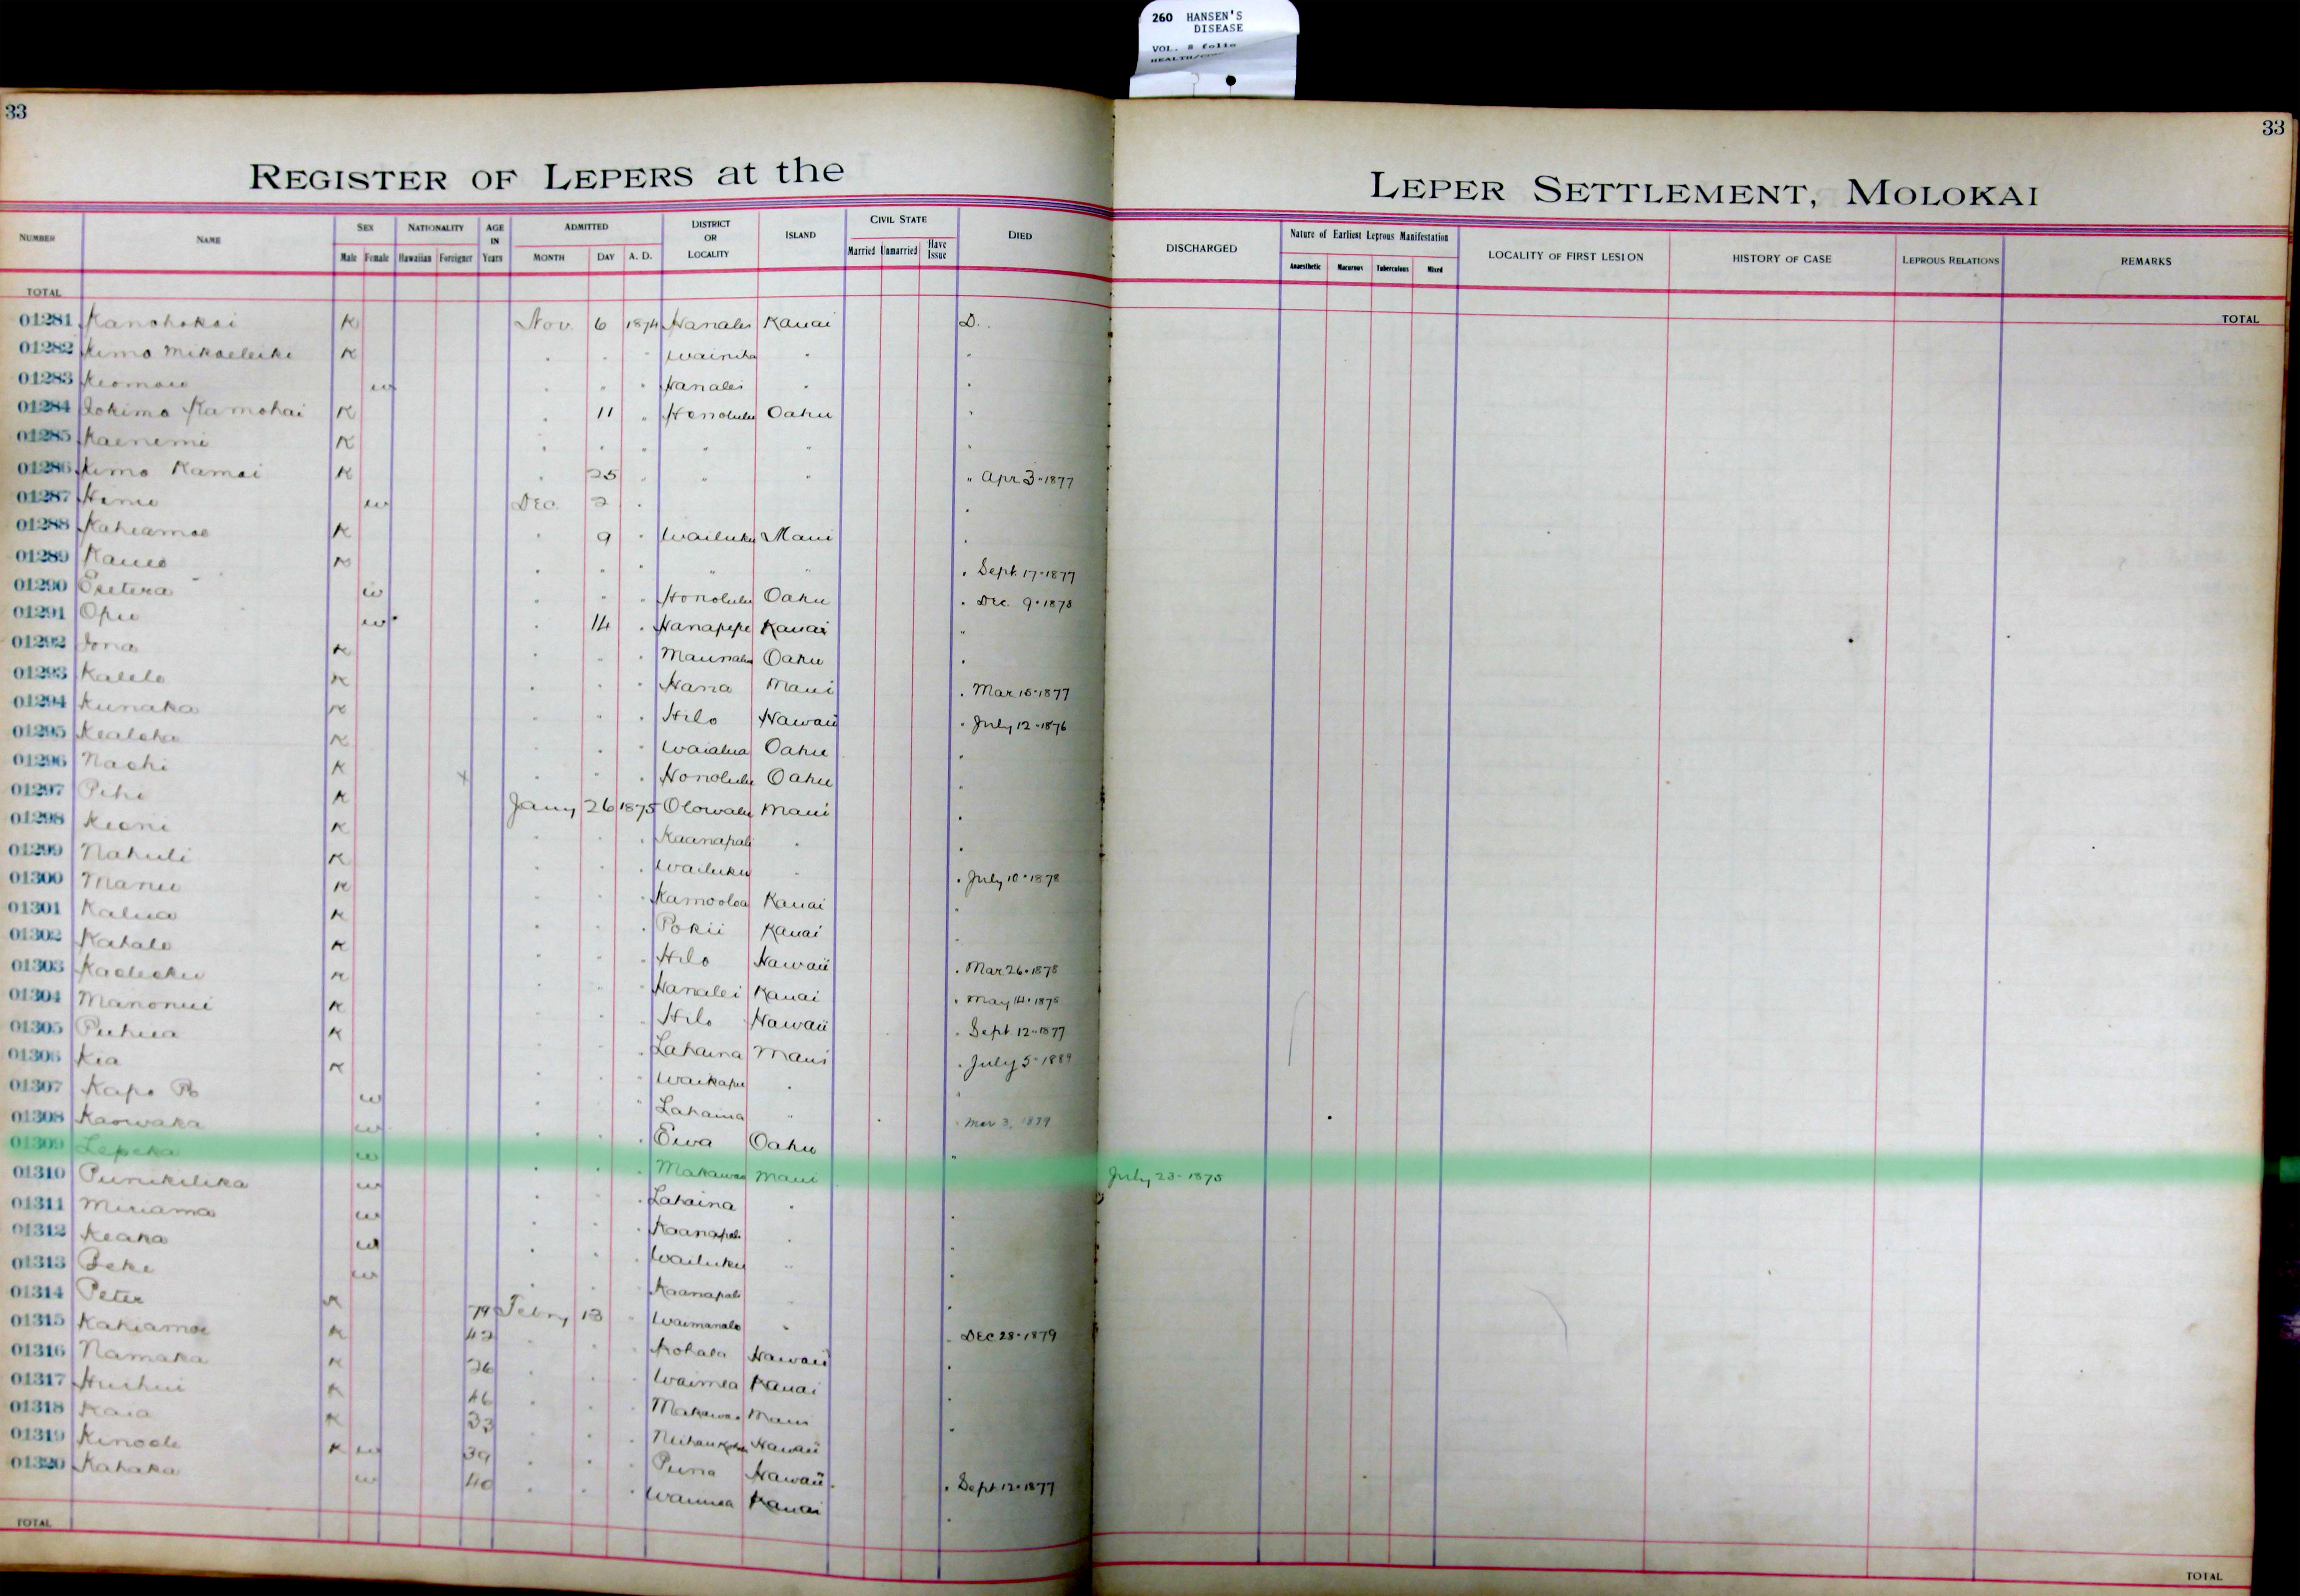 260 HANSEN'S
DISEASE
VOL. 8 folio
33
33
REGISTER OF LEPERS at the LEPER SETTLEMENT, MOLOKAI
NUMBER NAME SEX NATIONALITY AGE IN Years ADMITTED DISTRICT OR LOCALITY ISLAND CIVIL STATE DIED DISCHARGED Nature of Earliest Leprous Manifestation LOCALITY OF FIRST LESION HISTORY OF CASE LEPROUS RELATIONS REMARKS
Male Female Hawaiian Foreigner MONTH DAY A. D. Married Unmarried Have Issue Anaesthetic Macurous Tuberculous Mixed
TOTAL TOTAL
01281 Kanohokai K Nov. 6 1874 Hanalei Kauai D.
01282 Kimo Mikaeleike K " " " Wainiha " "
01283 Keomaiu w " " " Hanalei " "
01284 Iokimo Kamohai K " 11 " Honolulu Oahu "
01285 Kaenemi K " " " " " "
01286 Kimo Kamai K " 25 " " " " Apr 3-1877
01287 w Dec. 2 " "
01288 Kahiamoe K " 9 " Wailuku Maui "
01289 Kaueo K " " " " " " Sept. 17-1877
01290 Esetera w " " " Honolulu Oahu " Dec. 9-1878
01291 Opu w " 14 " Hanapepe Kauai "
01292 Iona K " " " Maunalua Oahu "
01293 Kalelo K " " " Hana Maui " Mar 15-1877
01294 Kunaka K " " " Hilo Hawaii " July 12-1876
01295 Kealoha K " " " Waialua Oahu "
01296 Naohi K x " " " Honolulu Oahu "
01297 Pihi K Jany 26 1875 Olowalu Maui "
01298 Keoni K " " " Kaanapali " "
01299 Nahuli K " " " Wailuku " " July 10-1878
01300 Manu K " " " Kamooloa Kauai "
01301 Kalua K " " " Pokii Kauai "
01302 Kahalo K " " " Hilo Hawaii " Mar 26-1878
01303 K " " " Hanalei Kauai " May 14-1875
01304 Manonui K " " " Hilo Hawaii " Sept 12-1877
01305 Puhua K " " " Lahaina Maui " July 5-1889
01306 Kia K " " " Waikapu " "
01307 Kapo w " " " Lahaina " " Mar 3, 1879
01308 Kaowaka w " " " Ewa Oahu "
01309 Lepeka w " " " Makawao Maui July 23-1875
01310 Punikilika w " " " Lahaina " "
01311 Miriama w " " " Kaanapali " "
01312 Keaka w " " " Wailuku " "
01313 Beke w " " " Kaanapali " "
01314 Peter K 79 Febry 13 " Waimanalo " " Dec 28-1879
01315 Kahiamoe K 42 " " " Kohala Hawaii "
01316 Namaka K 26 " " " Waimea Kauai "
01317 Huihui K 46 " " " Makawao Maui "
01318 Kaia K 33 " " " Hawaii
01319 Kinoole K w 39 " " " Puna Hawaii " Sept 12-1877
01320 Kahaka w 40 " " " Waimea Kauai "
TOTAL TOTAL